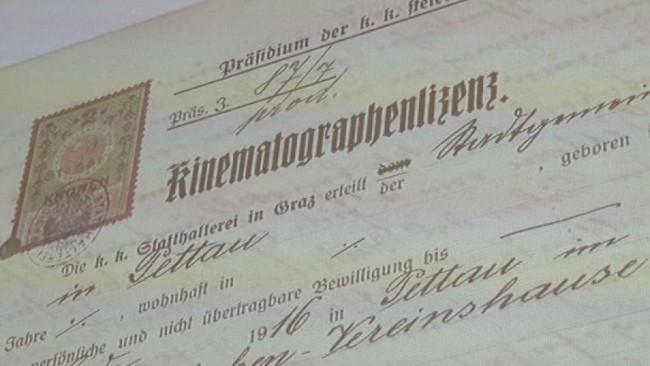 Präsidium der k. k. steier
Präs. Z. 87/7
prod.
2
KRONEN
Kinematographenlizenz.
Die k. k. Statthalterei in Graz erteilt dem der Stadtgemein
in Pettau , geboren
Jahre ./. , wohnhaft in ./.
persönliche und nicht übertragbare Bewilligung bis
1916 in Pettau im
Vereinshause